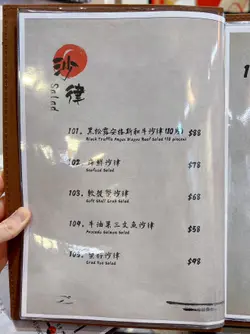 沙律
Salad
101. 黑松露安格斯和牛沙律 (10片) $88
Black Truffle Angus Wagyu Beef Salad (10 pieces)
102. 海鮮沙律 $78
Seafood Salad
103. 軟殼蟹沙律 $68
Soft Shell Crab Salad
104. 牛油果三文魚沙律 $68
Avocado Salmon Salad
105. 沙律 $98
Crab Roe Salad